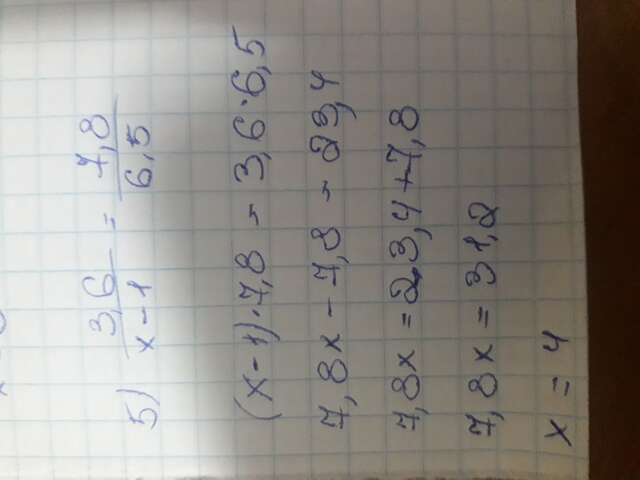 5) 3,6 / x-1 = 7,8 / 6,5
(x-1)·7,8 = 3,6·6,5
7,8x - 7,8 = 23,4
7,8x = 23,4+7,8
7,8x = 31,2
x = 4